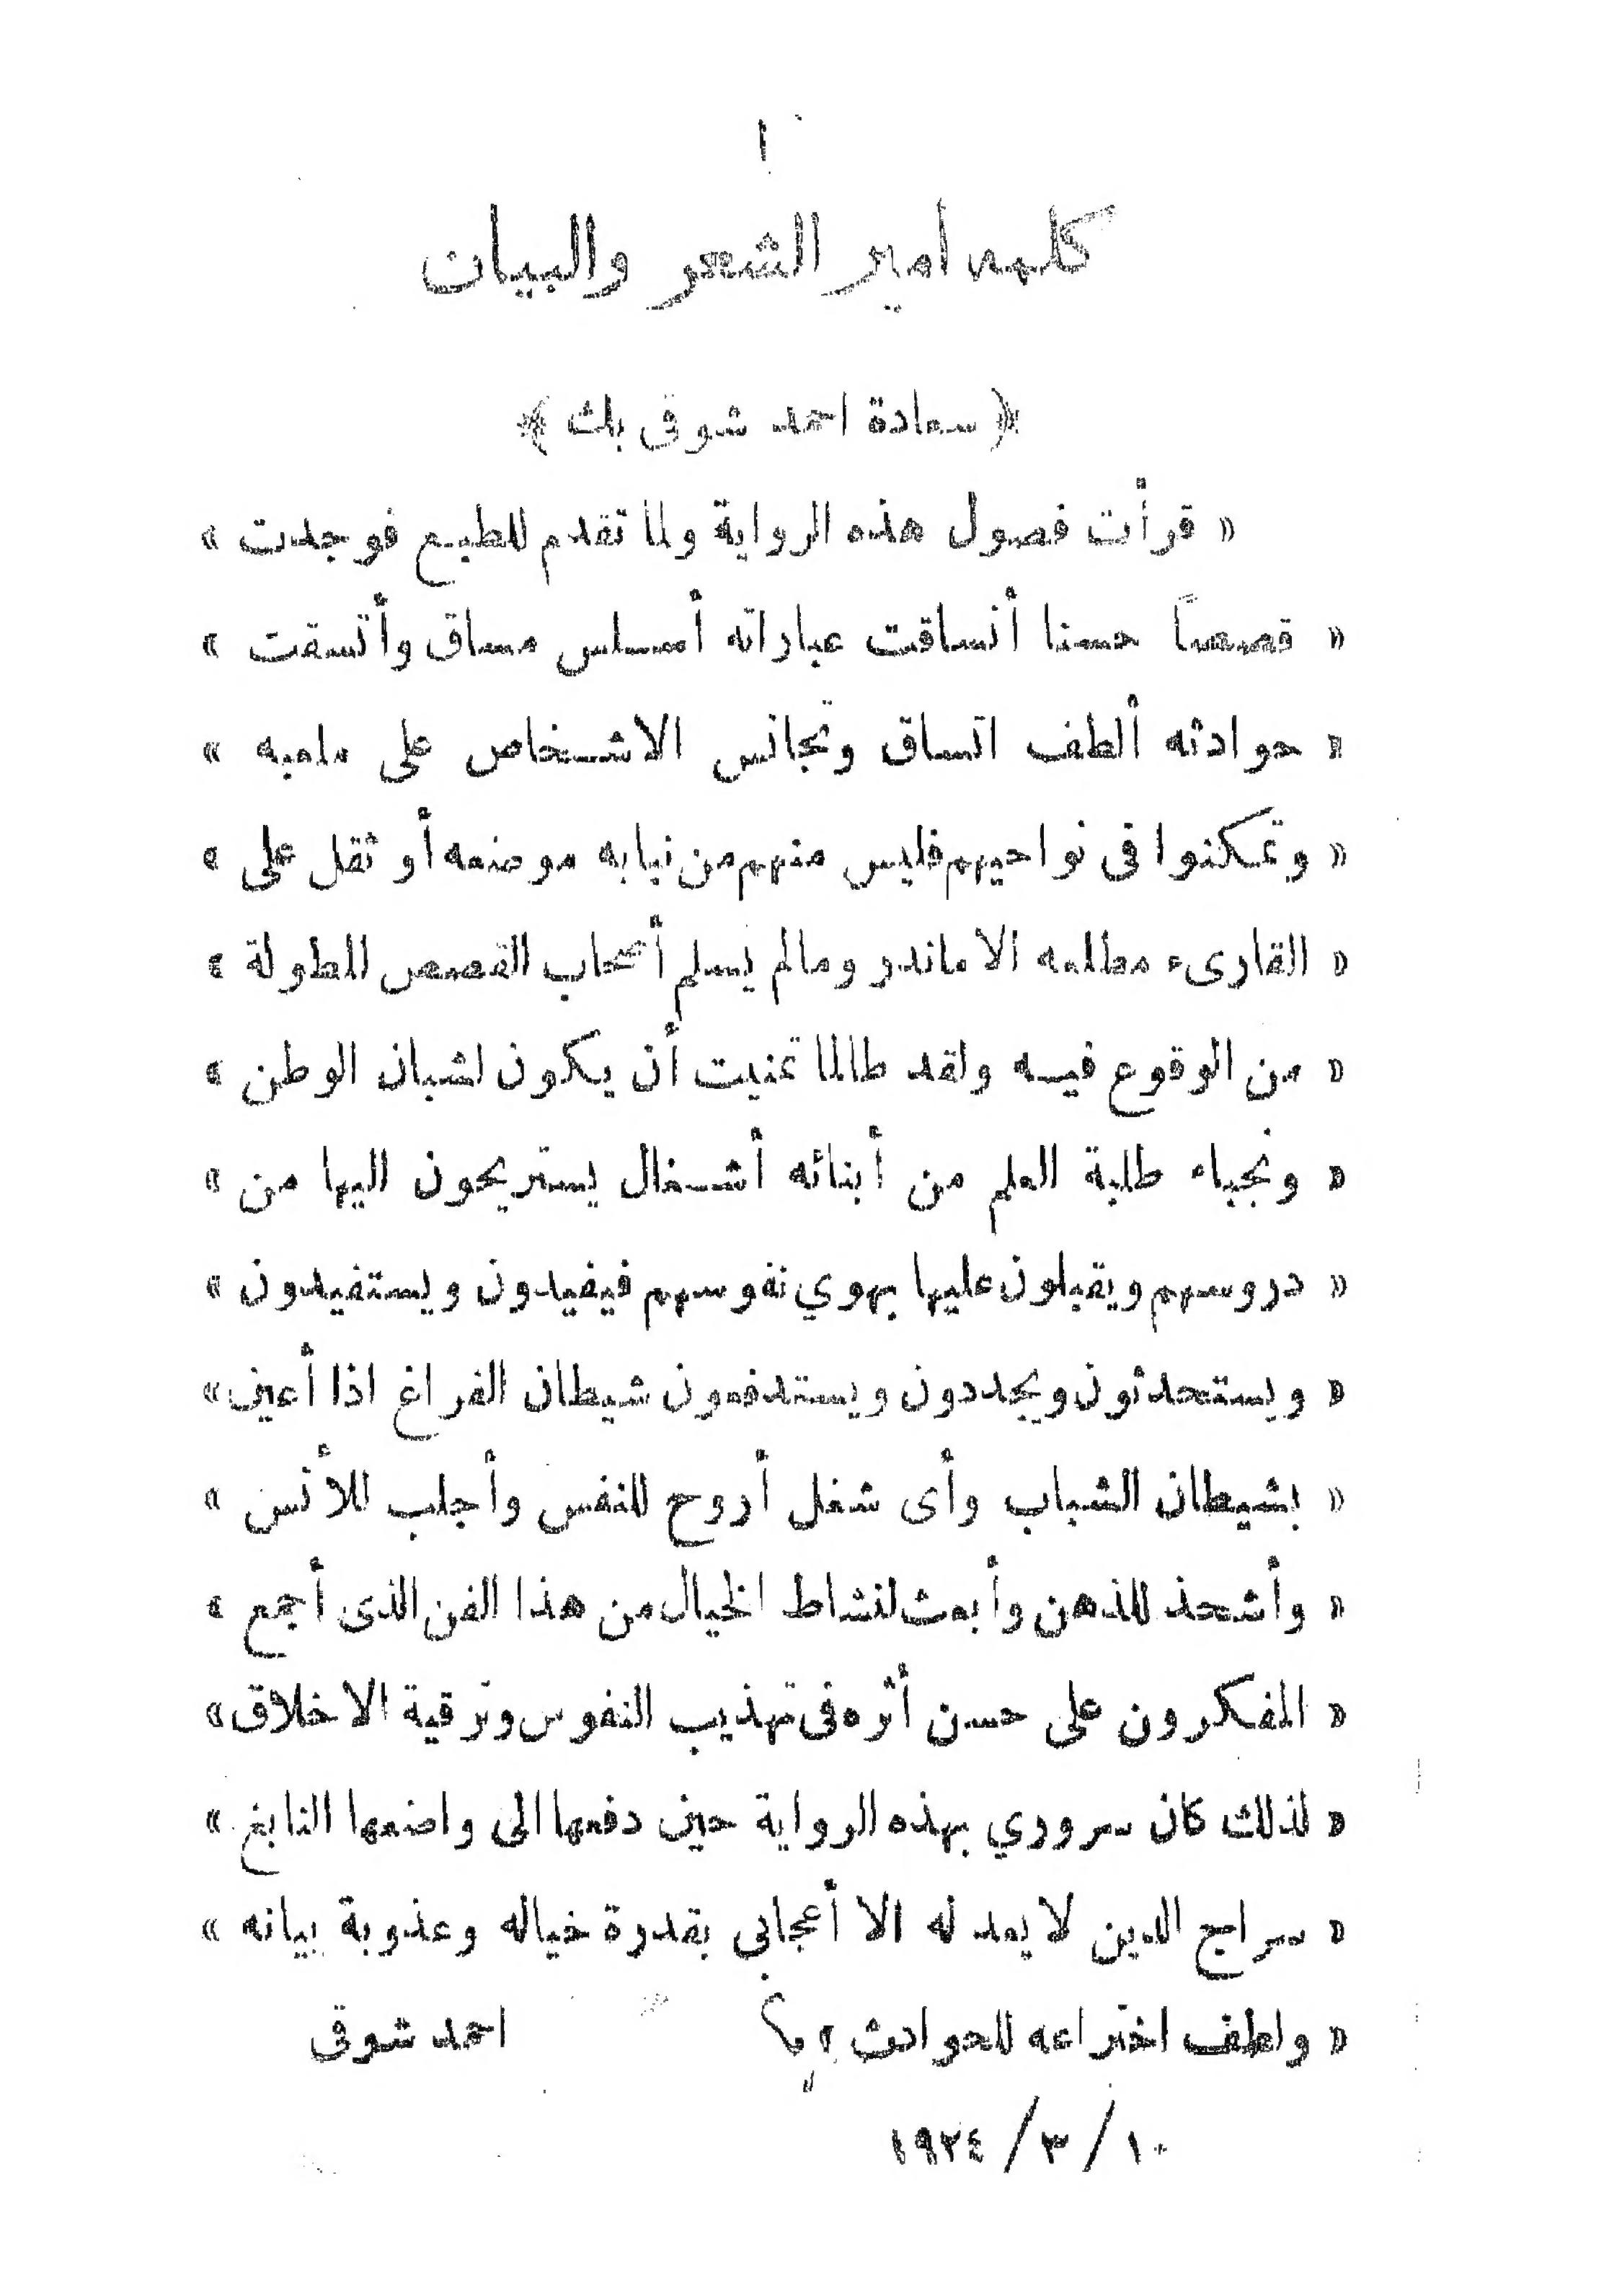 ١
كلمة أمير الشعر والبيان
﴿ سعادة احمد شوقى بك ﴾
« قرأت فصول هذه الرواية ولما تقدم للطبع فوجدت »
« قصصاً حسنا أنساقت عباراته أسلس مساق وأتسقت »
« حوادثه ألطف اتساق وتجانس الاشخاص على ملعبه »
« وتمكنوا فى نواحيهم فليس منهم من نبا به موضعه أو ثقل على »
« القارىء مطلعه الا ماندر ومالم يسلم أصحاب القصص المطولة »
« من الوقوع فيه ولقد طالما تمنيت أن يكون لشبان الوطن »
« ونجباء طلبة العلم من أبنائه أشغال يستريحون اليها من »
« دروسهم ويقبلون عليها بهوي نفوسهم فيفيدون ويستفيدون »
« ويستحدثون ويجددون ويستدفعون شيطان الفراغ اذا أعين »
« بشيطان الشباب وأى شغل أروح للنفس وأجلب للأنس »
« وأشحذ للذهن وأبعث لنشاط الخيال من هذا الفن الذى أجمع »
« المفكرون على حسن أثره فى تهذيب النفوس وترقية الاخلاق »
« لذلك كان سروري بهذه الرواية حين دفعها الى واضعها النابغ »
« سراج الدين لا يعد له الا أعجابى بقدرة خياله وعذوبة بيانه »
« ولطف اختراعه للحوادث » احمد شوقى
١٠/٣/١٩٢٤